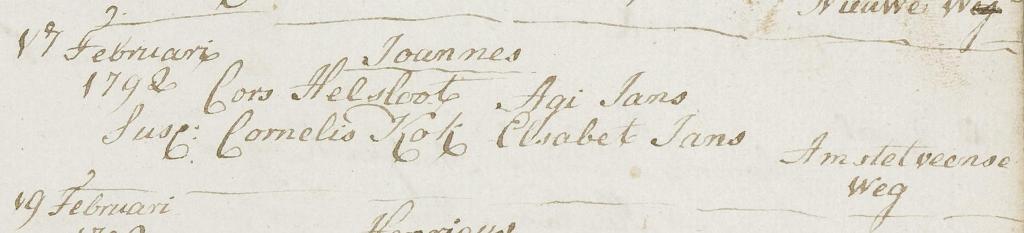 Nieuwe Weg
17 Februari Joannes
1792 Cors Helsloot Agi Jans
Susc: Cornelis Kok Elsabet Jans
Amstelveense
Weg
19 Februari
Henricus